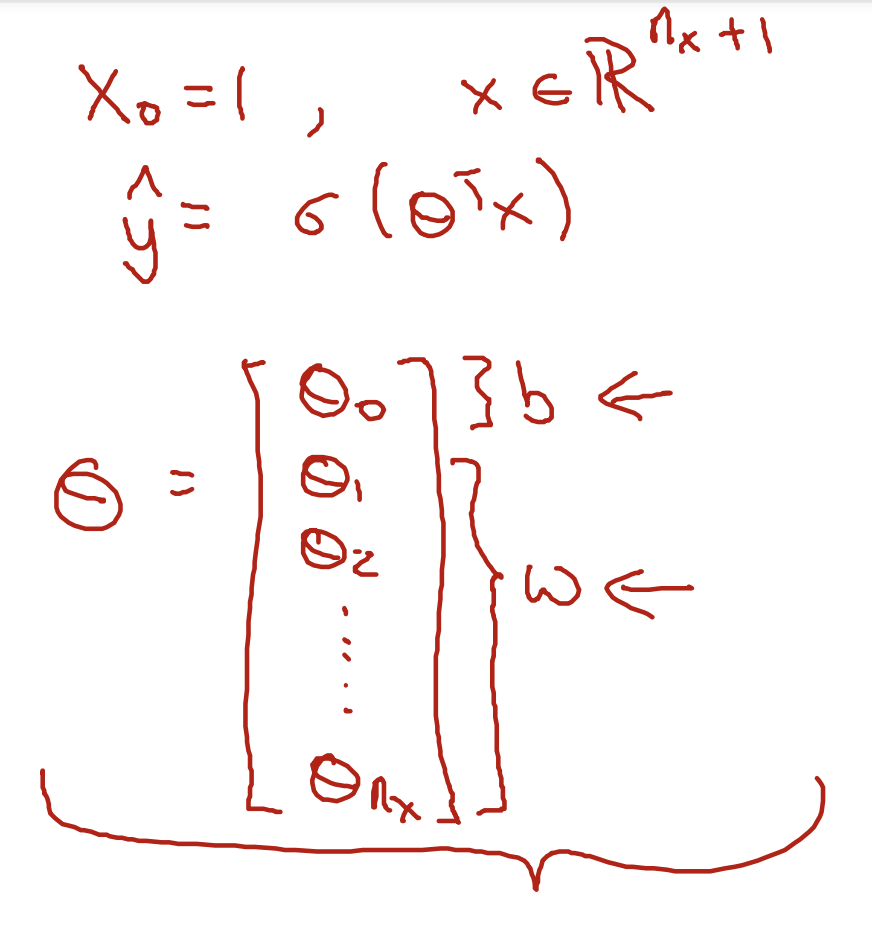 x₀ = 1 , x ∈ ℝⁿˣ⁺¹
ŷ = σ(θᵀx)
θ = [θ₀ θ₁ θ₂ ⋮ θₙₓ]
} b ←
} w ←